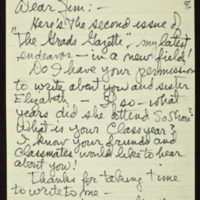 Dear Jim:-
Here's the second issue of
"The Grads Gazette", my latest
endeavor - in a new field!
Do I have your permission
to write about you and sister
Elizabeth - If so - what
years did she attend So. Shore?
What is your Class year?
I know your friends and
classmates would like to hear
about you!
Thanks for taking time
to write to me -